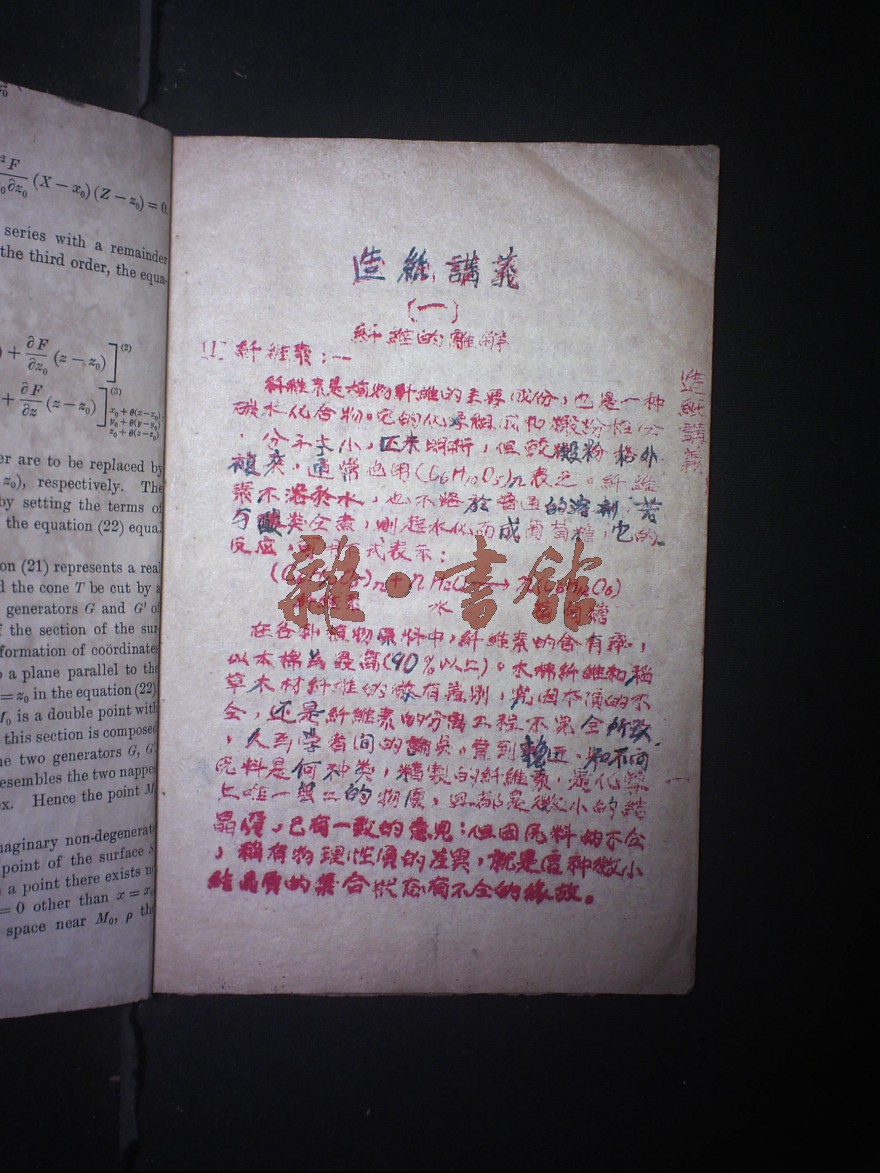 ∂²F/∂y₀∂z₀ (X − x₀)(Z − z₀) = 0.
series with a remainder
the third order, the equa-
+ ∂F/∂z₀ (z − z₀)]⁽²⁾
+ ∂F/∂z (z − z₀)]⁽³⁾
x₀ + θ(x − x₀)
y₀ + θ(y − y₀)
z₀ + θ(z − z₀)
er are to be replaced by
z₀), respectively. The
by setting the terms of
the equation (22) equal
on (21) represents a real
d the cone T be cut by a
generators G and G′ of
f the section of the sur-
formation of coördinates
o a plane parallel to the
= z₀ in the equation (22).
M₀ is a double point with
this section is composed
he two generators G, G′
resembles the two nappes
ox. Hence the point M
maginary non-degenerate
point of the surface S
a point there exists no
= 0 other than x = x₀
space near M₀, ρ the
造紙講義
(一)
纤維的離解
(1) 纤維素：—
纤維素是植物纤維的主要成份，也是一种
碳水化合物。它的化学組成和澱粉相仿
，分子大小，还未明晰，但較澱粉格外
複雜，通常也用(C₆H₁₀O₅)n表之。纤維
素不溶於水，也不溶於普通的溶剂，若
与酸类仝煮，則起水化而成葡萄糖，它的
反应，可用式表示：
(C₆H₁₀O₅)n + n H₂O → n(C₆H₁₂O₆)
纤維素 水 葡萄糖
在各种植物原料中，纤維素的含有率，
以木棉為最高(90%以上)。木棉纤維和稻
草木材纤維的稍有差别，究因本質的不
仝，还是纤維素的分離工程不完全所致
，久為学者間的論爭。曾到輓近，知不问
原料是何种类，精製的纤維素，是化学
上唯一無二的物質，且都是微小的結
晶質，已有一致的意見；但因原料的不仝
，稍有物理性質的差異，就是這种微小
結晶質的集合狀态有不仝的緣故。
造紙講義
一
雜·書館